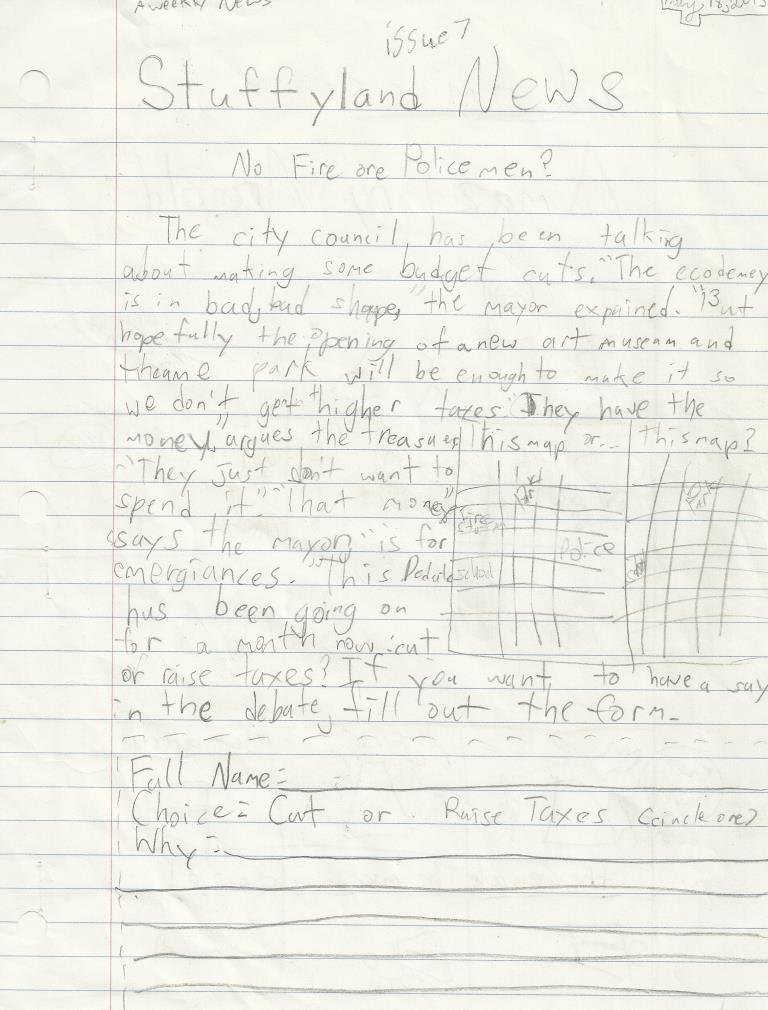 A weekly News
May 18, 201
issue 7
Stuffyland News
No Fire ore Policemen?
The city council, has been talking
about making some budget cuts. "The ecodemey
is in bad, bad shape," the mayor expained. "But
hopefully the opening of a new art museam and
theame park will be enough to make it so
we don't get higher taxes." "They have the
money," argues the treasuer,
"They just don't want to
spend it" "That money"
says the mayor, "is for
emergiances." This Debate
hus been going on
for a month now: cut
or raise taxes? If you want to have a say
in the debate, fill out the form.
This map or...
this map?
Fire
Police
school
Full Name=
Choice= Cut or Raise Taxes (cincle one)
Why=